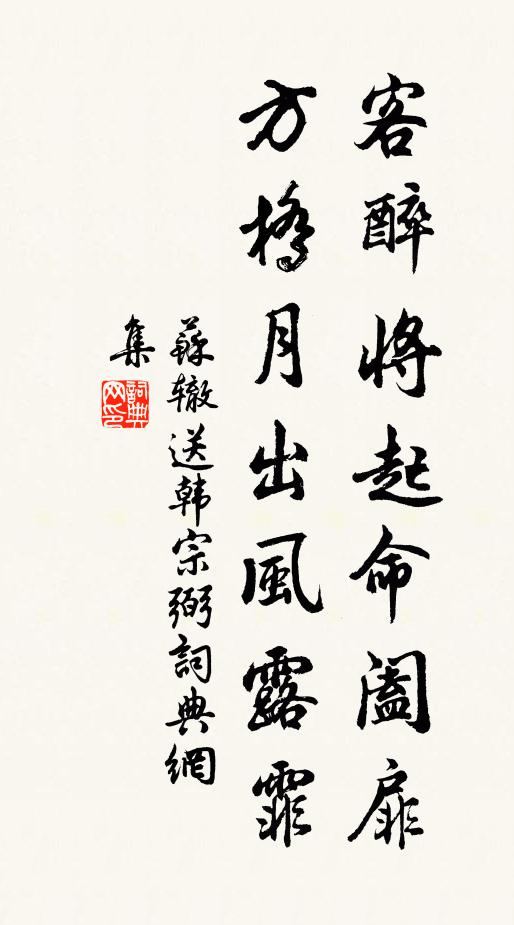 客醉將起命闔扉
方橋月出風露霏
蘇辙送韩宗弼詞典網
集
詞典
网印